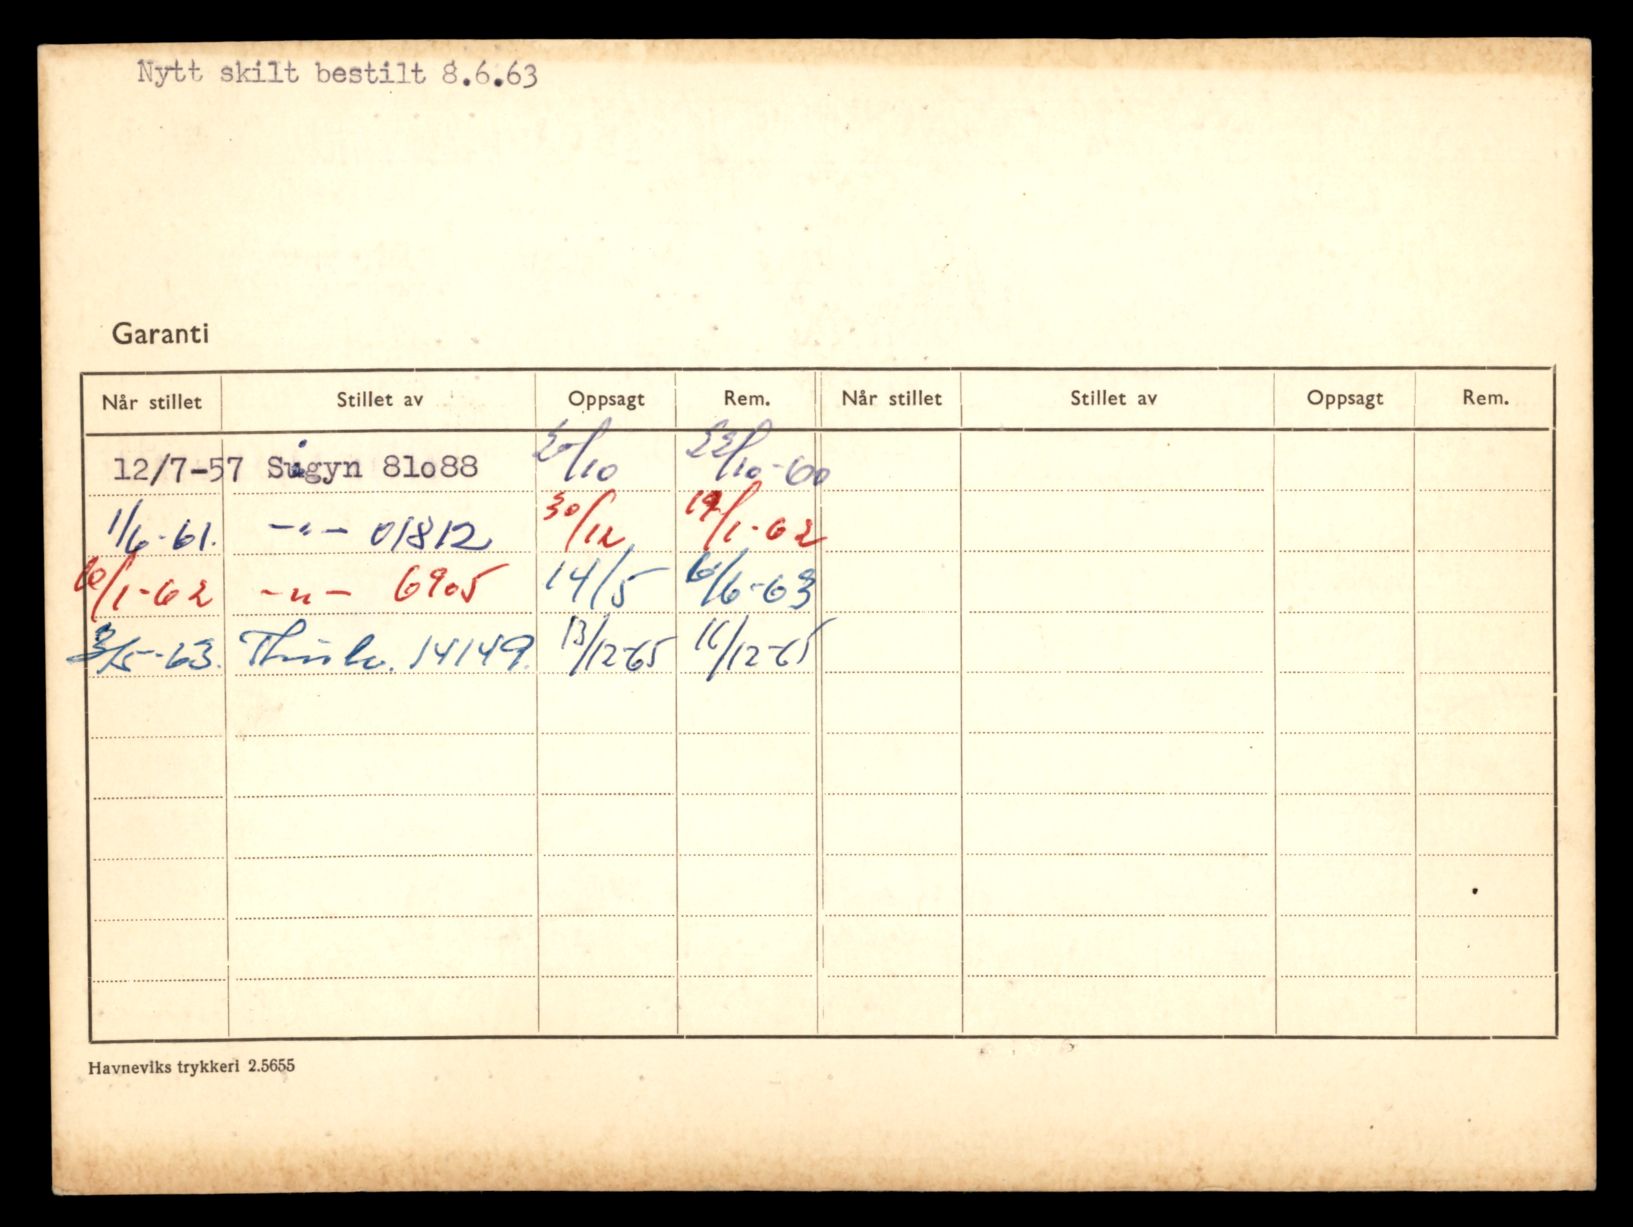 Nytt skilt bestilt 8.6.63
Garanti
Når stillet Stillet av Oppsagt Rem. Når stillet Stillet av Oppsagt Rem.
12/7-57 Sigyn 81o88 /10 22/10-60
1/6-61. -"- 01812 30/12 19/1-62
10/1-62 -"- 6905 14/5 6/6-63
3/5-63. 14149. 13/12-65 16/12-65
Havneviks trykkeri 2.5655